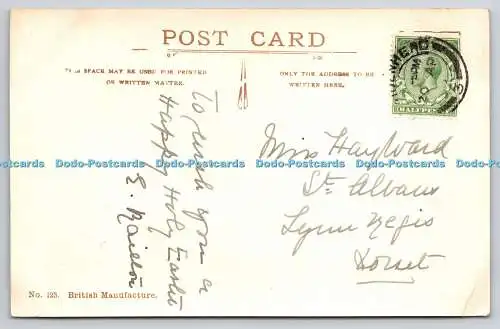 POST CARD
THIS SPACE MAY BE USED FOR PRINTED
OR WRITTEN MATTER.
ONLY FOR THE ADDRESS TO BE
WRITTEN HERE.
HALFPENNY
To wish you a
Happy Holy Easter
E. Railton
Miss Hayward
St. Albans
Lyme Regis
Dorset
No. 125. British Manufacture.
Dodo-Postcards Dodo-Postcards Dodo-Postcards Dodo-Postcards Dodo-Postcards